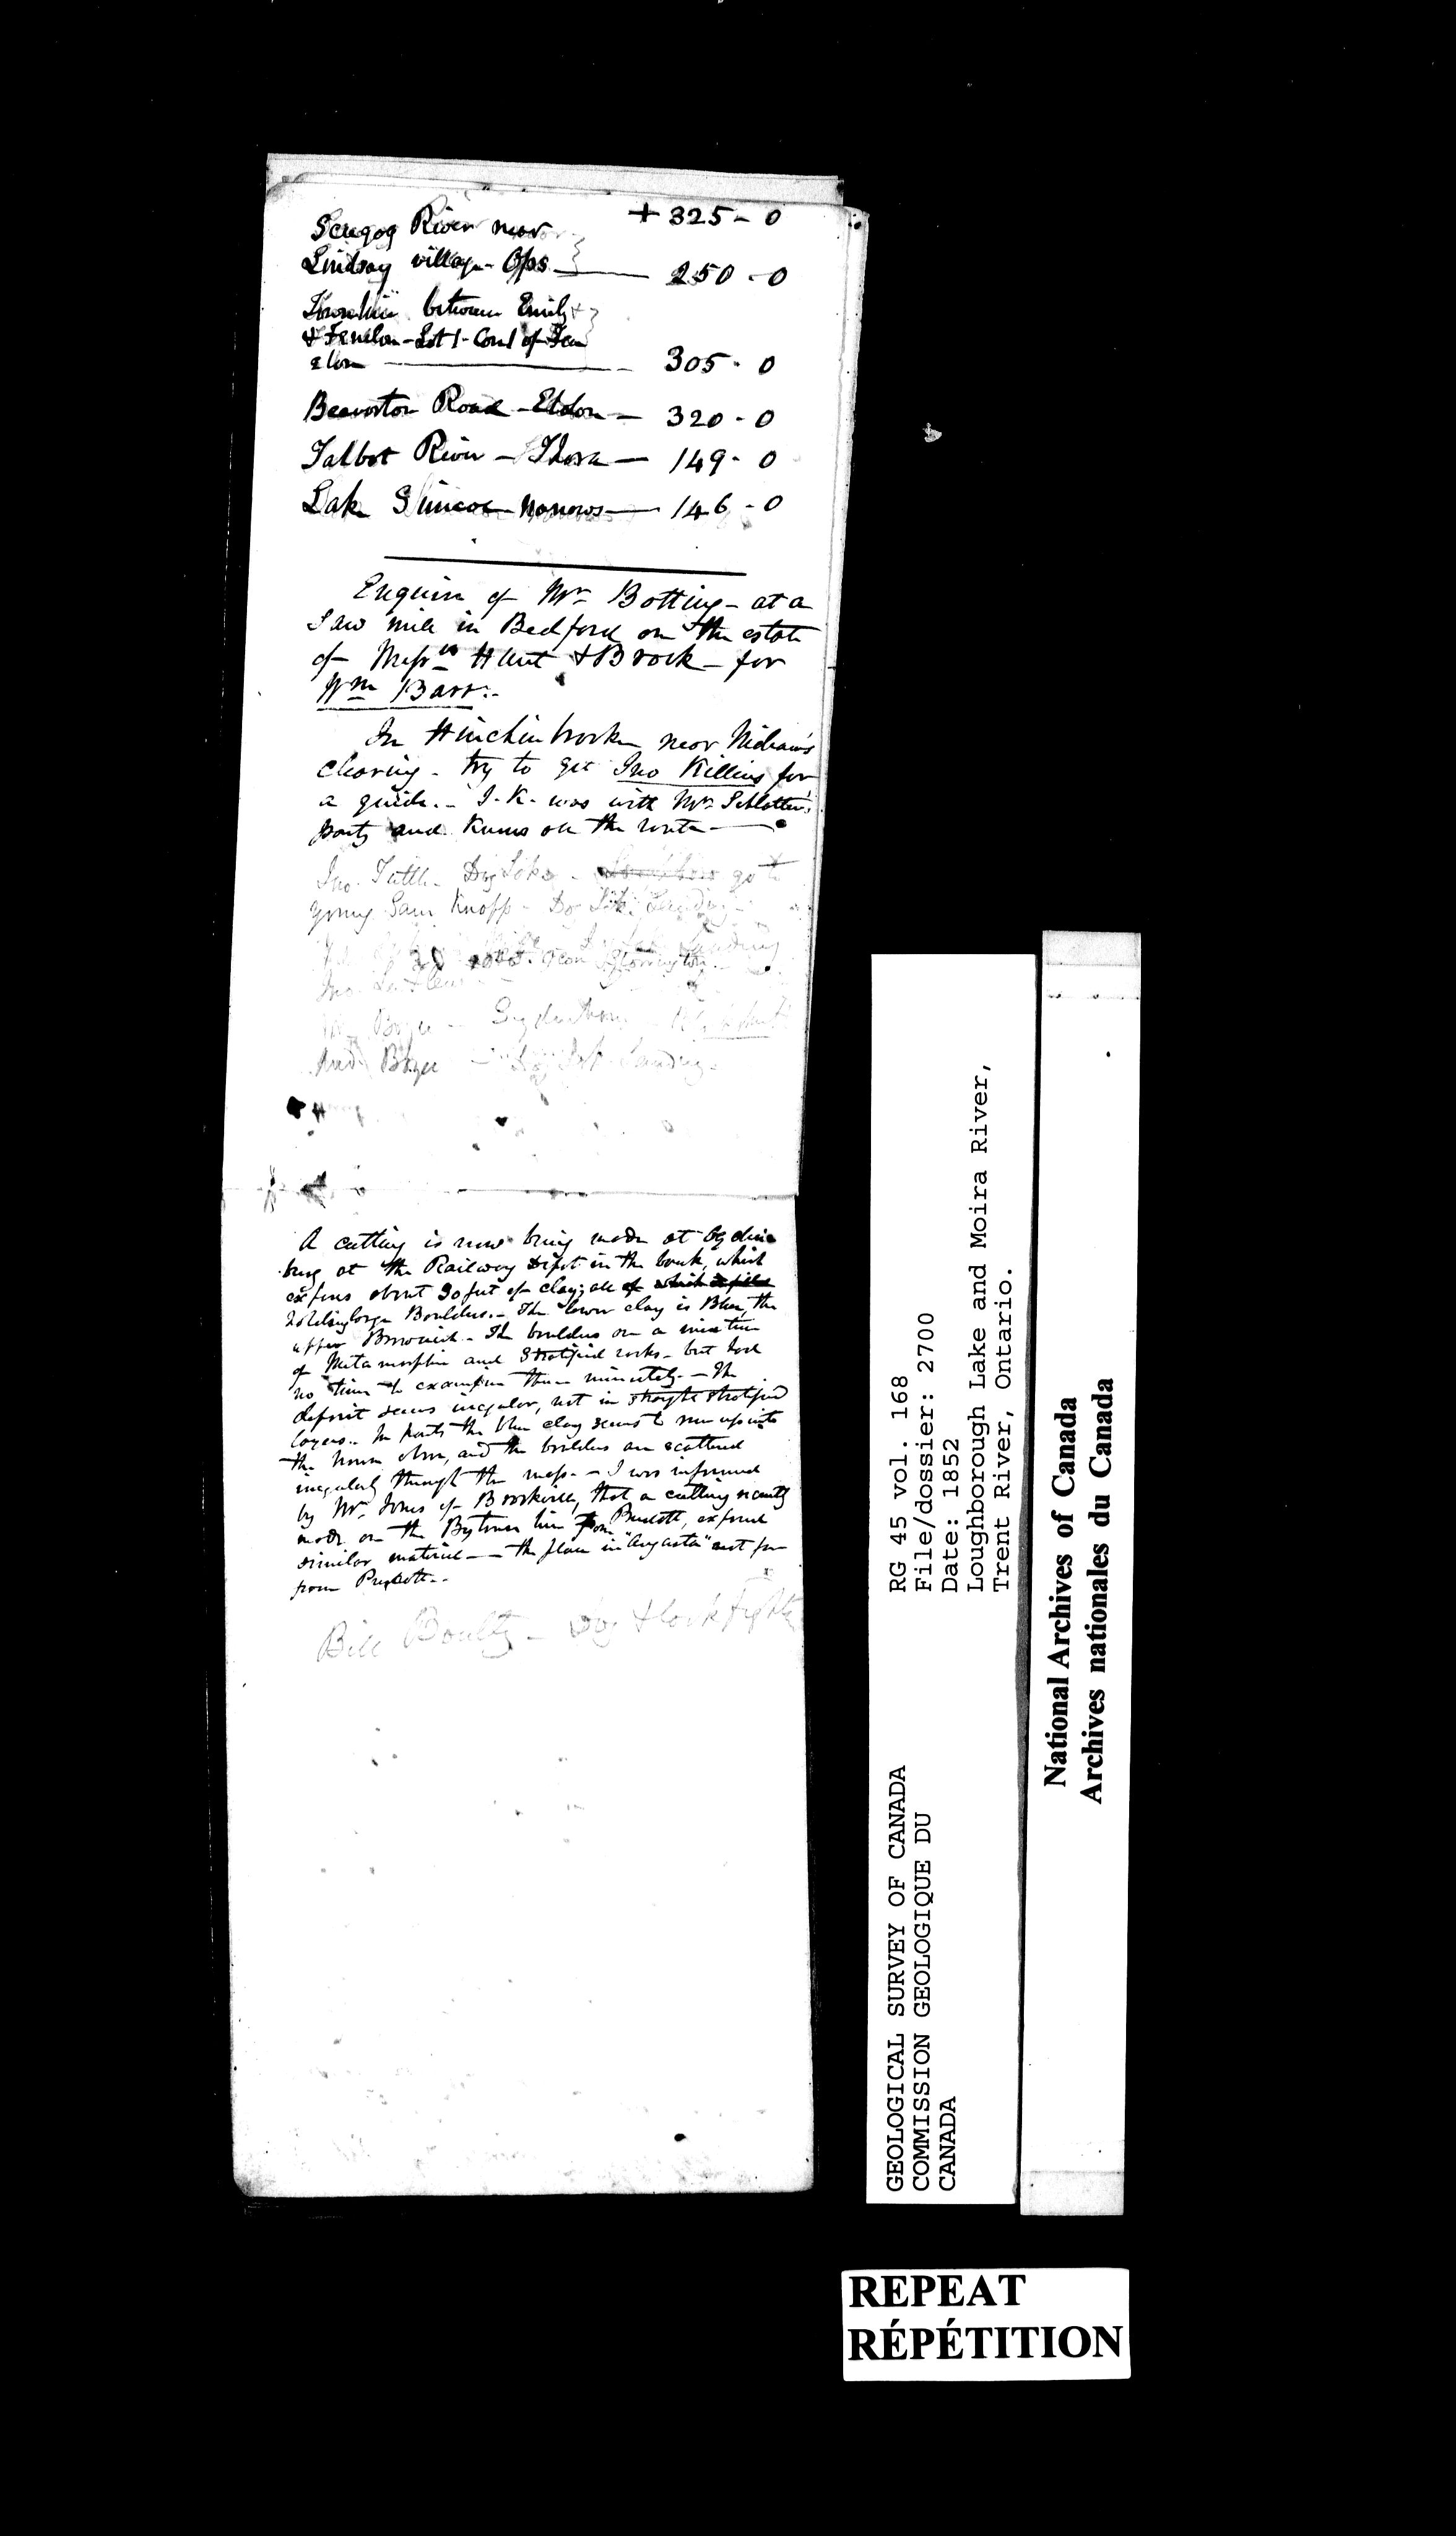 + 325 - 0
Scugog River near
Lindsay village - Ops — 250 - 0
Townline between Emily +
& Fenelon - Lot 1 - Con 1 of Fen
elon — 305 - 0
Beaverton Road - Eldon — 320 - 0
Talbot River — Thora — 149 - 0
Lake Simcoe narrows — 146 - 0
Enquire of Mr Botting - at a
Saw mill in Bedford on the estate
of Messrs Hunt & Brock - for
Wm Barr.-
In Hinchinbrooke near
clearing - try to get Jno Killins for
a guide. - J. K. was with Mr
party and knows all the route —
Jno. Tuttle - Dog Lake - go to
young Sam Knapp - Dog Lake Landing -
Landing
Storrington
Jno.
Boyce
And Boyce — Landing.
A cutting is now being made at Ogdens
burg at the Railway Depot in the bank, which
exposes about 30 feet of clay; all of which
holding large Boulders. - The lower clay is Blue, the
upper Brownish - The boulders are a mixture
of Metamorphic and Stratified rocks - but had
no time to examine them minutely. - The
deposit seems irregular, not in straight stratified
layers.. In parts the blue clay seems to run up into
the brown above, and the boulders are scattered
irregularly through the mass. - I was informed
by Mr. Jones of Brockville, that a cutting recently
made on the Bytown line from Prescott, exposed
similar material — the place in "Augusta" not far
from Prescott..
Bill Boulty - Dog & Cock fighter
RG 45 vol. 168
File/dossier: 2700
Date: 1852
Loughborough Lake and Moira River,
Trent River, Ontario.
GEOLOGICAL SURVEY OF CANADA
COMMISSION GEOLOGIQUE DU
CANADA
National Archives of Canada
Archives nationales du Canada
REPEAT
RÉPÉTITION